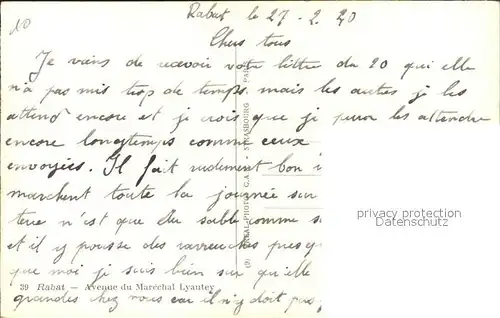 10
Rabat le 27-2.20
Chers tous
Je viens de recevoir votre lettre du 20 qui elle
n'a pas mis trop de temps. mais les autres je les
attend encore et je crois que je peux les attendre
encore longtemps comme ceux
envoyées. Il fait rudement bon i
marchent toute la journée sur
tere n'est que du sable comme s
et il y pousse des presq
que moi je suis bien sur qu'elle
grandes chez vous car il n'y doit pas
39 Rabat — Avenue du Maréchal Lyautey
(2) RÉAL-PHOTO C.A.P. STRASBOURG PARIS
privacy protection
Datenschutz